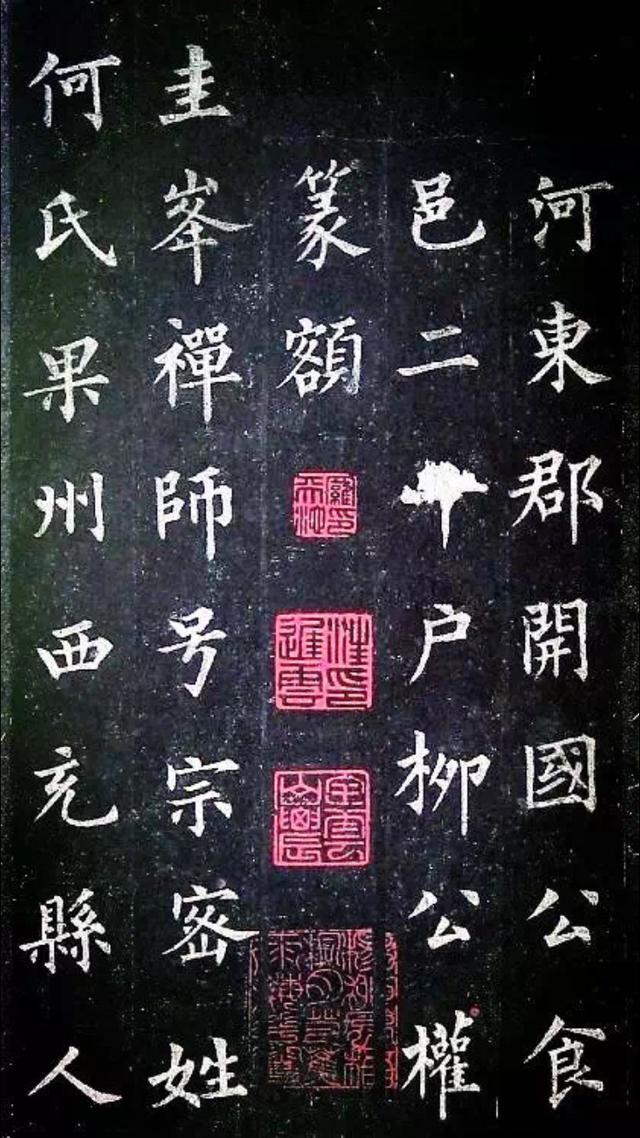 河東郡開國公食
邑二千户柳公權
篆額
羅印天池
圭峯禪師号宗密姓
何氏果州西充縣人